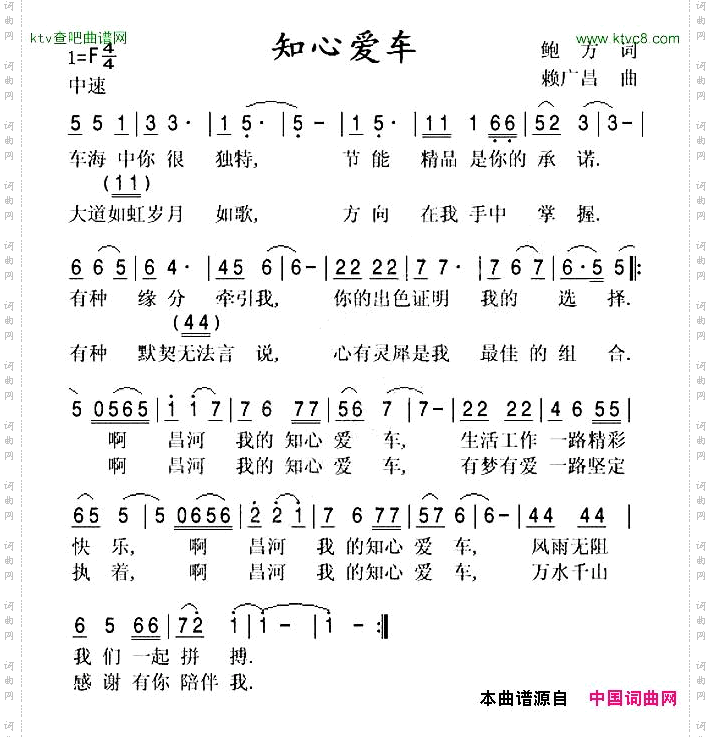 ktv查吧曲谱网
www.ktvc8.com
知心爱车
1=F 4/4
鲍 方 词
中速
赖广昌 曲
5 5 1 | 3 3· | 1 5· | 5 – | 1 5· | 11 1 66 | 52 3 | 3 – |
车海 中你 很 独特, 节 能 精品 是你的 承 诺.
(11)
大道如虹岁月 如歌, 方 向 在我 手中 掌 握.
6 6 5 | 6 4· | 45 6 | 6 – | 22 22 | 7 7· | 7 6 7 | 6·5 5 ‖:
有种 缘分 牵引我, 你的出色证明 我的 选 择.
(44)
有种 默契无法言 说, 心有灵犀是我 最佳 的 组 合.
5 0565 | i i 7 | 7 6 77 | 56 7 | 7 – | 22 22 | 4 6 55 |
啊 昌河 我的 知心 爱 车, 生活工作 一路精彩
啊 昌河 我的 知心 爱 车, 有梦有爱 一路坚定
65 5 | 5 0656 | 2 2 i | 7 6 77 | 57 6 | 6 – | 44 44 |
快 乐, 啊 昌河 我 的知心 爱 车, 风雨无阻
执 着, 啊 昌河 我 的知心 爱 车, 万水千山
6 5 66 | 72 i | i – | i – :‖
我 们 一起 拼 搏.
感 谢 有你 陪伴 我.
本曲谱源自 中国词曲网